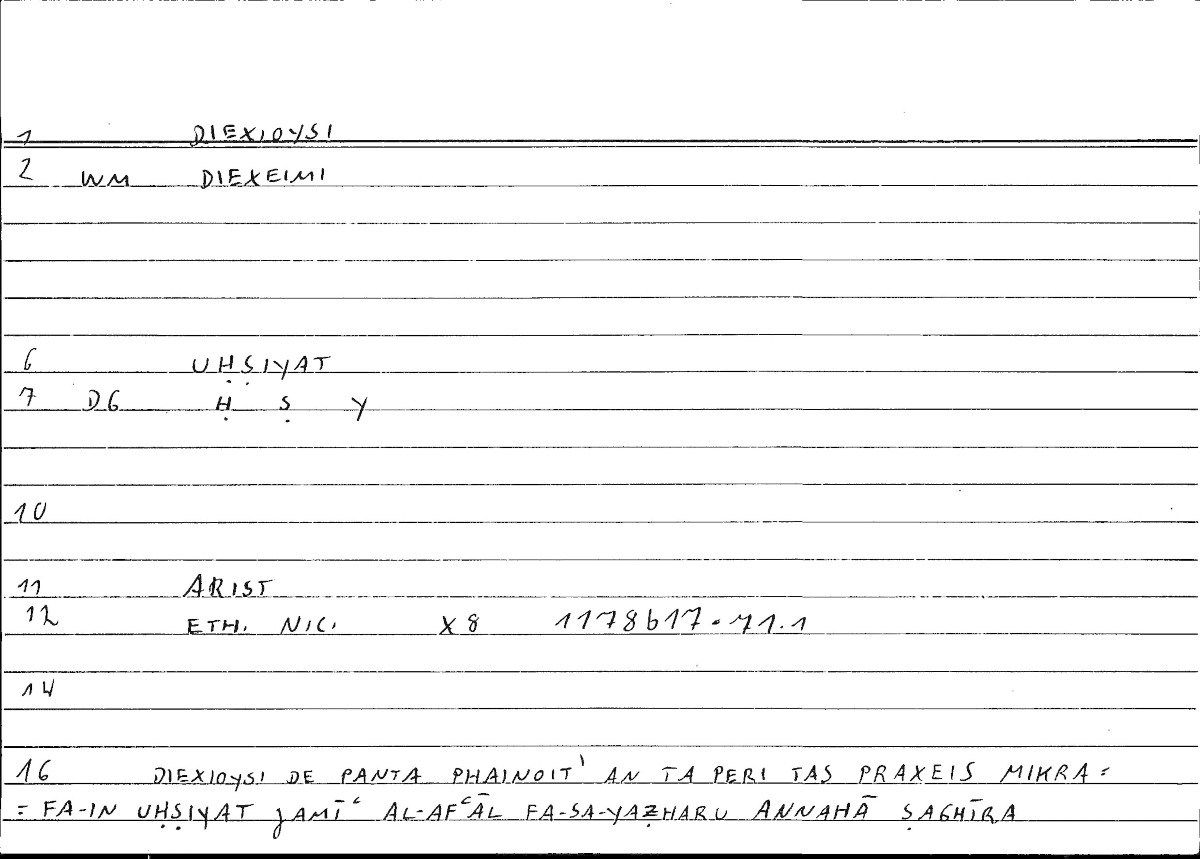 1 DIEXIOYSI
2 WM DIEXEIMI
6 UḤṢIYAT
7 DG Ḥ Ṣ Y
10
11 ARIST
12 ETH. NIC. X8 1178b17.71.1
14
16 DIEXIOYSI DE PANTA PHAINOIT' AN TA PERI TAS PRAXEIS MIKRA =
= FA-IN UḤṢIYAT JAMĪʿ AL-AFʿĀL FA-SA-YAẒHARU ANNAHĀ ṢAGHĪRA